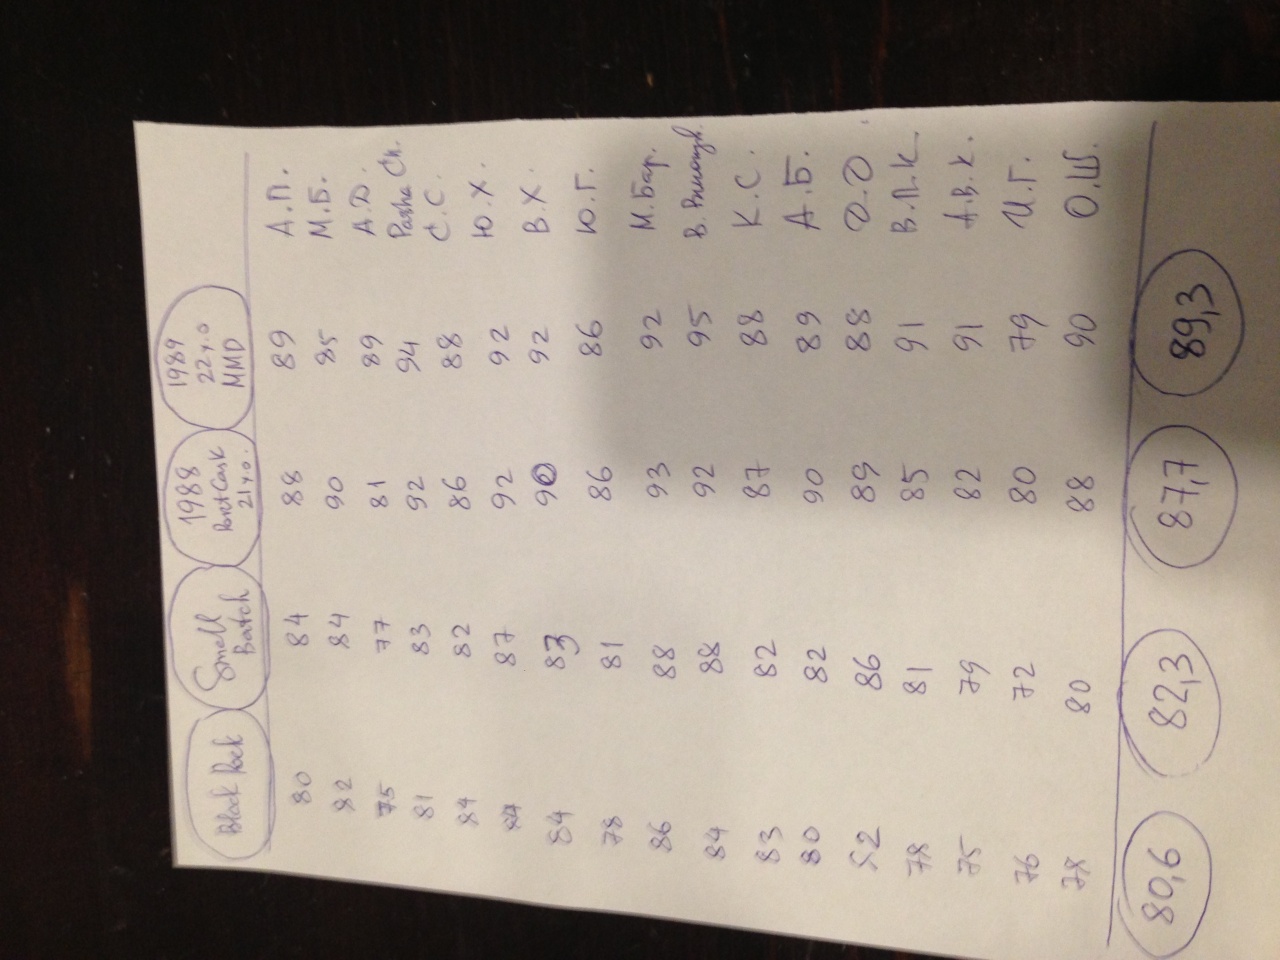 Black Rock Small Batch 1988 Port Cask 21 y.o. 1989 22 y.o MMD
80 84 88 89 А.П.
82 84 90 85 М.Б.
75 77 81 89 А.Д.
81 83 92 94 Pasha Ch.
84 82 86 88 С.С.
84 87 92 92 Ю.Х.
84 83 90 92 В.Х.
78 81 86 86 Ю.Г.
86 88 93 92 М.Бар.
84 88 92 95 В.
83 82 87 88 К.С.
80 82 90 89 А.Б.
82 86 89 88 О.О.
78 81 85 91 В.П.К.
75 79 82 91 А.В.К.
76 72 80 79 И.Г.
78 80 88 90 О.Ш.
80,6 82,3 87,7 89,3